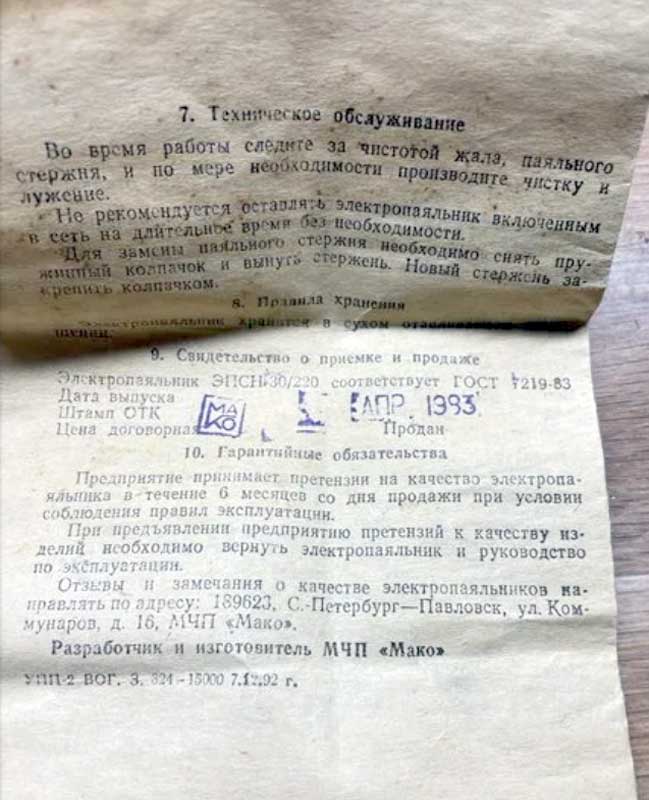 7. Техническое обслуживание
Во время работы следите за чистотой жала, паяльного
стержня, и по мере необходимости производите чистку и
лужение.
Не рекомендуется оставлять электропаяльник включенным
в сеть на длительное время без необходимости.
Для замены паяльного стержня необходимо снять пру-
жинный колпачок и вынуть стержень. Новый стержень за-
крепить колпачком.
8. Правила хранения
Электропаяльник хранится в сухом
9. Свидетельство о приемке и продаже
Электропаяльник ЭПСН 30/220 соответствует ГОСТ 7219-83
Дата выпуска АПР. 1993
Штамп ОТК МАКО
Цена договорная Продан
10. Гарантийные обязательства
Предприятие принимает претензии на качество электропа-
яльника в течение 6 месяцев со дня продажи при условии
соблюдения правил эксплуатации.
При предъявлении предприятию претензий к качеству из-
делий необходимо вернуть электропаяльник и руководство
по эксплуатации.
Отзывы и замечания о качестве электропаяльников на-
правлять по адресу: 189623, С.-Петербург—Павловск, ул. Ком-
мунаров, д. 16, МЧП «Мако».
Разработчик и изготовитель МЧП «Мако»
УПП-2 ВОГ. З. 824—15000 7.12.92 г.